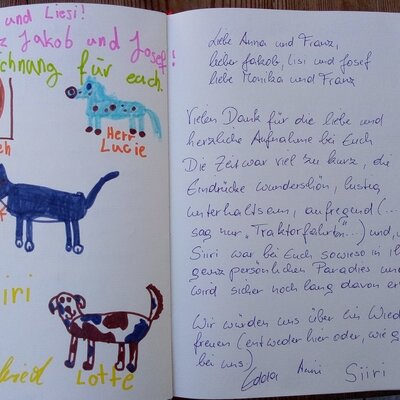 und Liesi!
Jakob und Josef!
chnung für euch.
Herr
Lucie
eh
iri
Lotte
Liebe Anna und Franz,
lieber Jakob, Lisi und Josef
liebe Monika und Franz
Vielen Dank für die liebe und
herzliche Aufnahme bei Euch
Die Zeit war viel zu kurz, die
Eindrücke wunderschön, lustig
unterhaltsam, aufregend (...
sag nur „Traktorfahrten"...) und,
Siiri war bei Euch sowieso in ih
ganz persönlichen Paradies und
wird sicher noch lang davon er
Wir würden uns über ein Wied
freuen (entweder hier oder, wie g
bei uns)
Edda Siiri